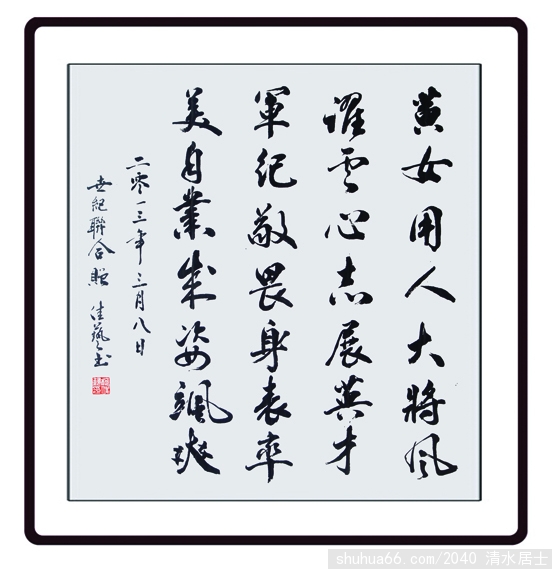 黄女用人大將风
躍雲心志展英才
軍纪敬畏身表率
美自業成姿飒爽
二零一三年三月八日
世紀聯合贈 佳藝
shuhua66.com/2040 清水居士